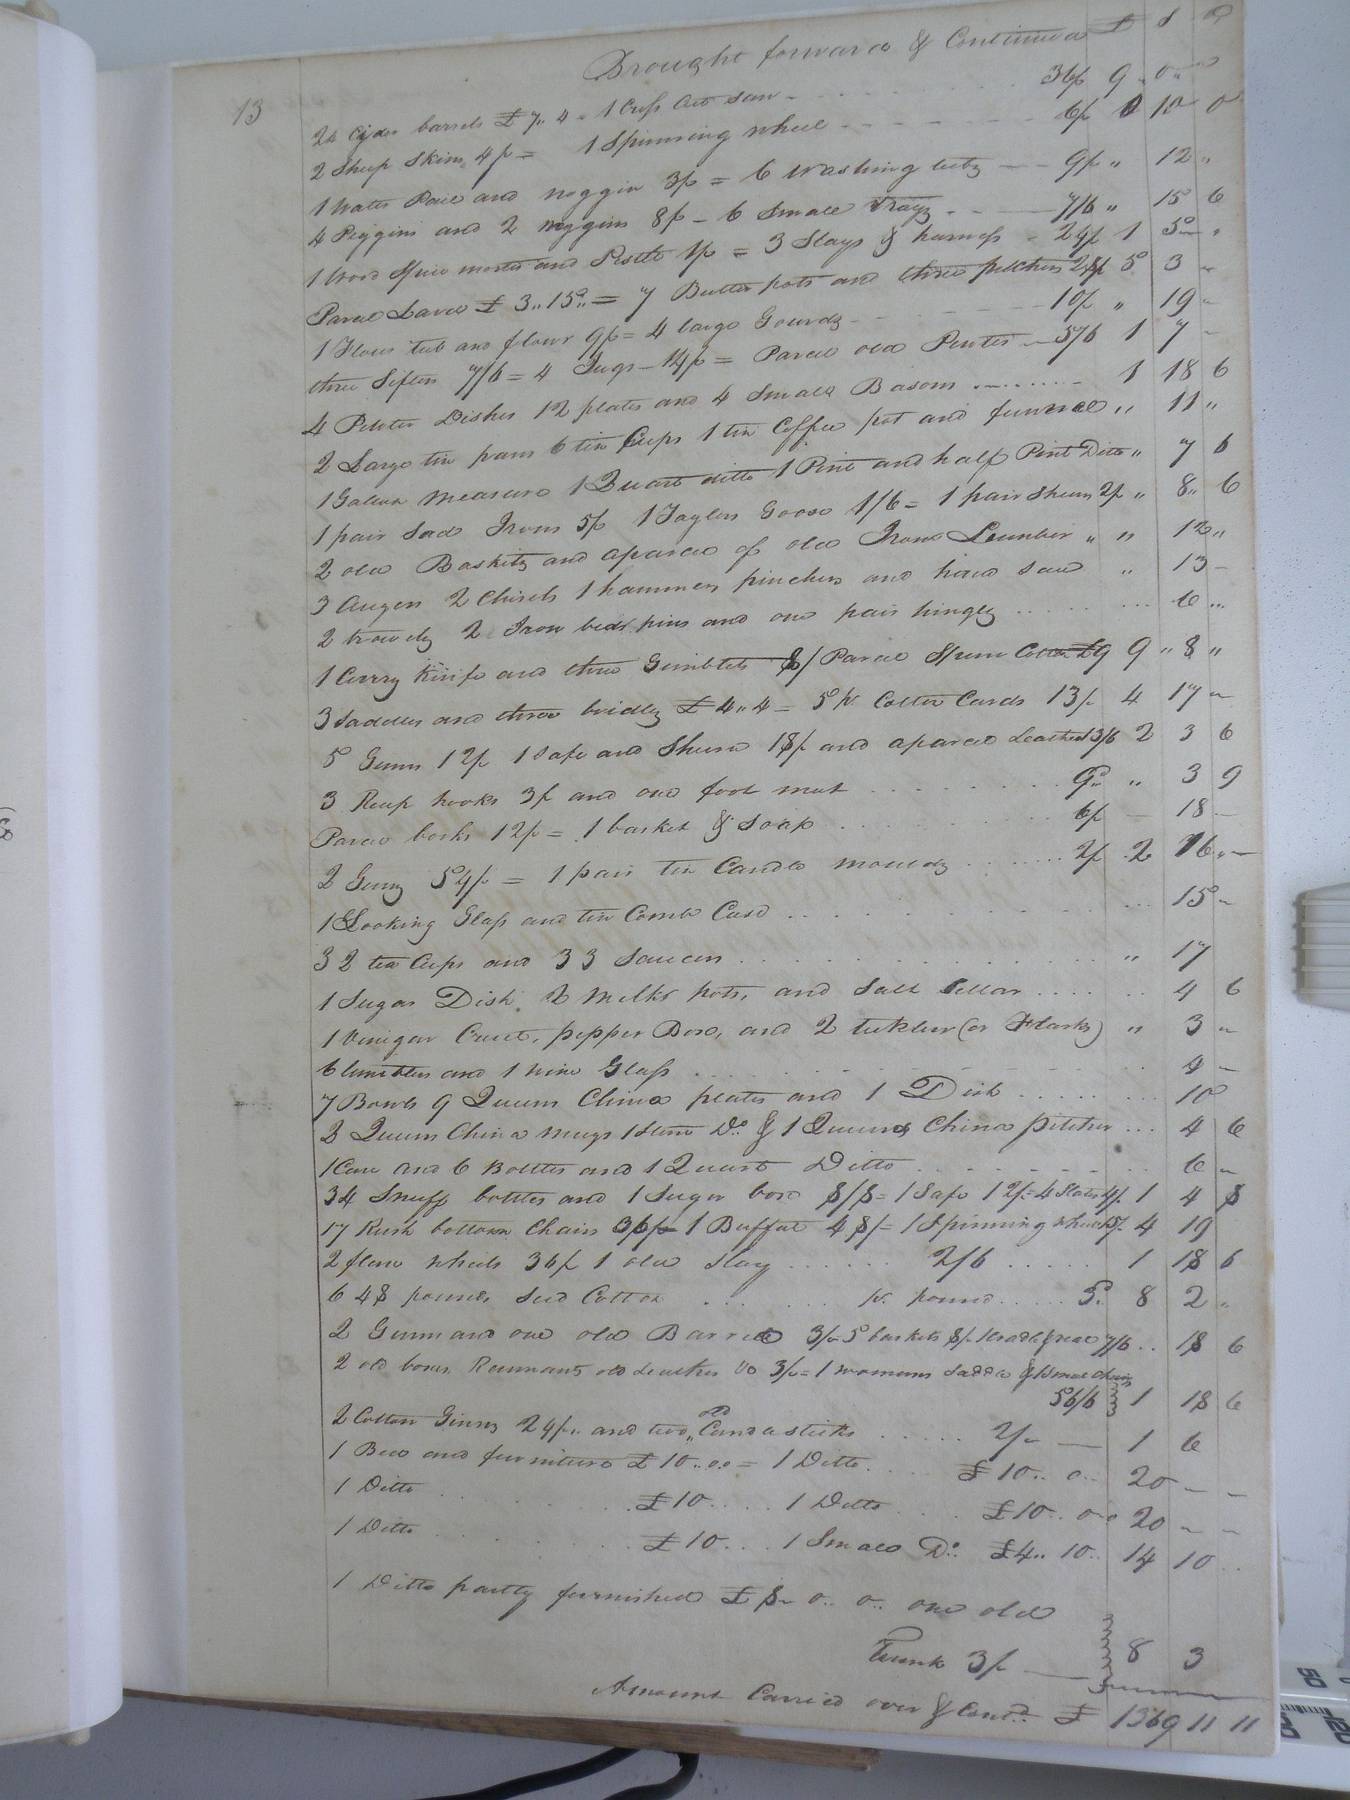 Brought forward & Continued £ S D
13
24 Cyder barrels £7.. 4 = 1 Cross Cut saw - 36/ 9 .. 0 ..
2 Sheep Skins 4/ = 1 Spinning wheel 6/ 0 10 0
1 Water Pail and noggin 3/ = 6 Washing tubs 9/ " 12 "
4 Piggins and 2 noggins 8/ - 6 Small Trays 7/6 " 15 6
1 Wood Spice morter and Pestle 1/ = 3 Slays & harness 24/ 1 5 "
Parcel Lard £3..15.. = 7 Butter pots and three pitchers 28/ 5 3 "
1 Flour tub and flour 9/ = 4 large Gourds 10/ " 19 "
three Sifters 7/6 = 4 Jugs - 14/ = Parcel old Pewter 5/6 1 7 -
4 Pewter Dishes 12 plates and 4 Small Basons 1 18 6
2 Large tin pans 6 tin Cups 1 tin Coffee pot and funnel " 11 "
1 Galun measure 1 Quart ditto 1 Pint and half Pint Ditto " 7 6
1 pair Sad Irons 5/ 1 Taylers Goose 1/6 = 1 pair Shears 2/ " 8 " 6
2 old Baskits and a parcel of old Iron Lumber " " 12 "
3 Augers 2 Chisels 1 hammer pinchers and hand saw " 13 -
2 trowels 2 Iron bed pins and one pair hinges 6 ..
1 Curry Knife and three Gimblets 8/ Parcel Spun Cotton £9 9 " 8 "
3 saddles and three bridles £4..4 = 5 pr Cotton Cards 13/ 4 17 -
5 Guns 12/ 1 Safe and Shears 18/ and a parcel Leather 3/6 2 3 6
3 Reap hooks 3/ and one foot mat 9d " 3 9
Parcel books 12/ = 1 basket & Soap 6/ - 18 -
2 Guns 54/ = 1 pair tin Candle moulds 2/ 2 16 " -
1 Looking Glass and tin Comb Case 15 -
32 tea Cups and 33 Saucers " 17
1 Sugar Dish, 2 Milk pots, and Salt Cellar 4 6
1 Vinigar Cruet, pepper Box, and 2 (or Flasks) " 3 -
6 tumblers and 1 wine Glass 4 -
7 Bowls 9 Queens China plates and 1 Dish 10
3 Queens China mugs 1 Stone Do. & 1 Queens China pitcher 4 6
1 Case and 6 Bottles and 1 Quart Ditto 6 -
34 Snuff bottles and 1 Sugar box 8/8 = 1 Safe 12/ = 4 Slates 4/ 1 4 8
17 Rush bottom Chairs 36/ 1 Buffat 48/ = 1 Spinning wheel 4 19
2 flax wheels 36/ 1 old Slay 2/6 1 18 6
648 pounds Seed Cotton pr. pound 3d. 8 2 "
2 Gum and one old Barrel 3/ - 5 baskets 8/ 7/6 .. 18 6
2 old boxes, Remnants old Leather 3/ = 1 womans Saddle & 13 small Chairs
56/6 1 18 6
2 Cotton Ginns 24/.. and two old Candlesticks 2/ - 1 6
1 Bed and furniture £10..0.0 = 1 Ditto £10.. 0.. 20 - -
1 Ditto £10.... 1 Ditto £10.. 0.0 20 - -
1 Ditto £10... 1 Small Do. £4.. 10.. 14 10 ..
1 Ditto partly furnished £8 - 0.. 0.. one old
Trunk 3/ 8 3
Amount Carried over & Contd. £ 1369 11 11